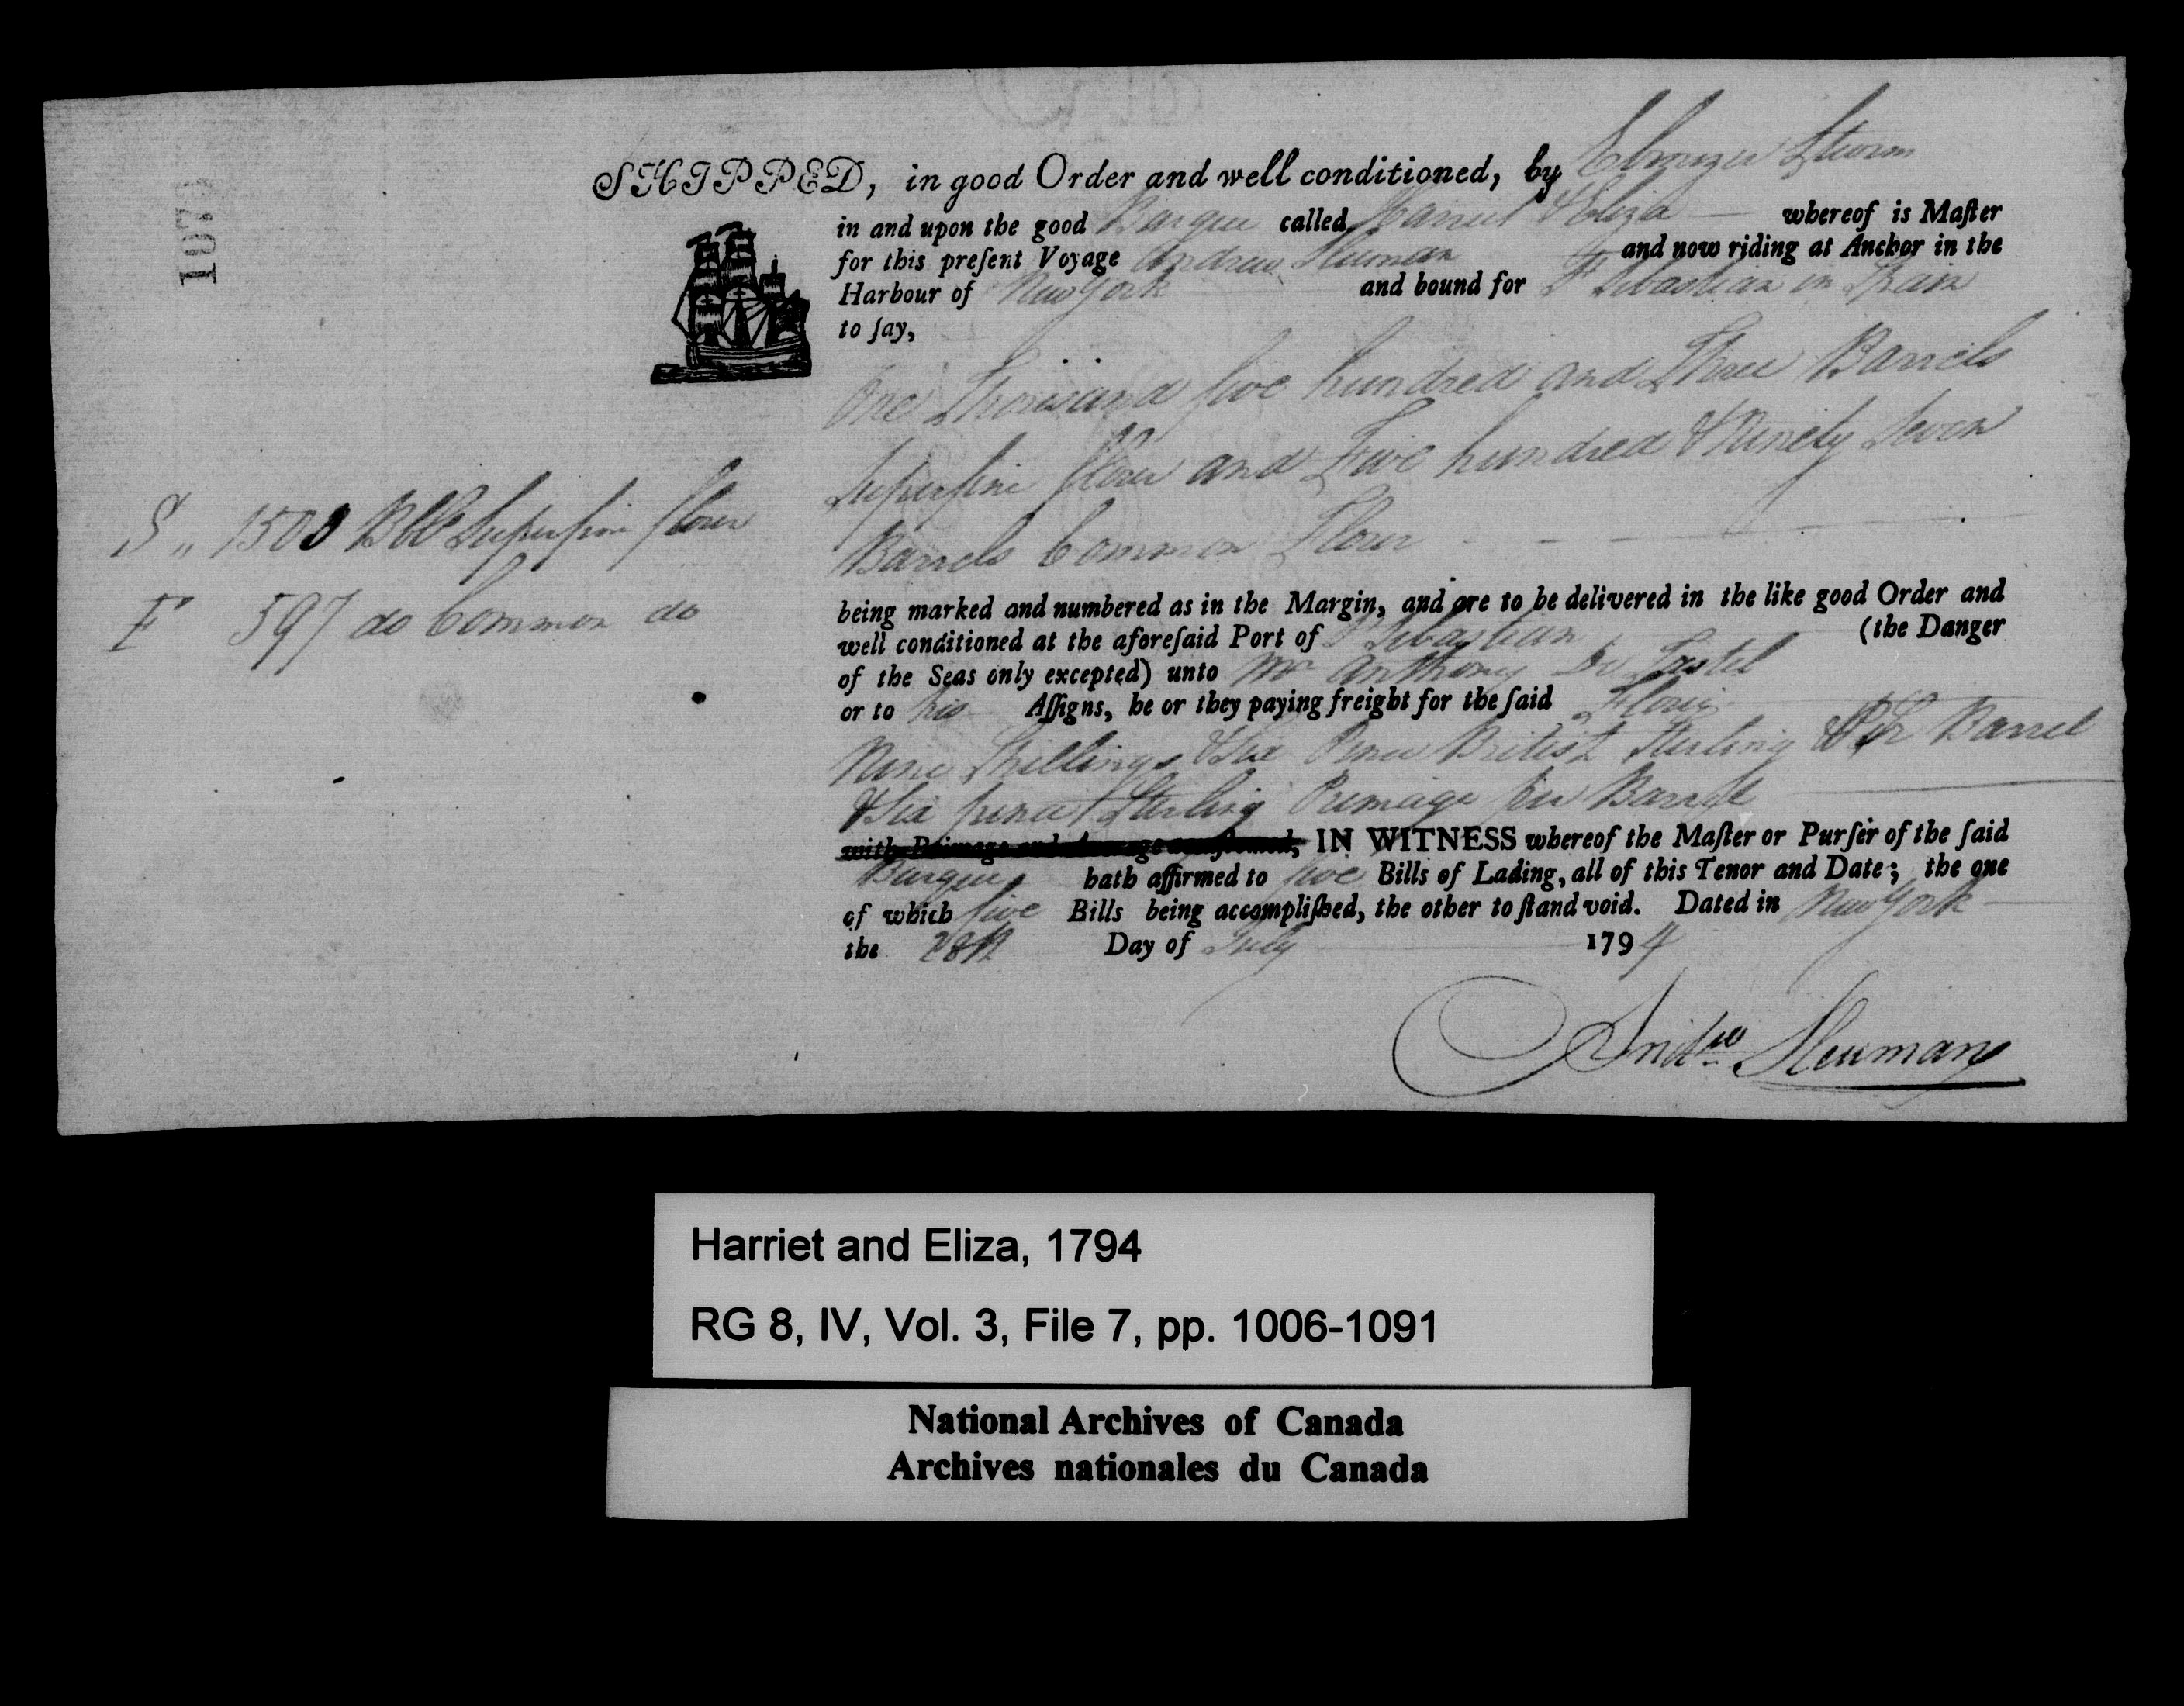 1073
SHIPPED, in good Order and well conditioned, by Ebenezer
in and upon the good Barque called Harriet & Eliza whereof is Maſter
for this preſent Voyage Andrew and now riding at Anchor in the
Harbour of New York and bound for St Sebastian in Spain
to ſay,
One Thousand five hundred and Three Barrels
Superfine flour and Five hundred & Ninety Seven
Barrels Common Flour
S " 1503 Bbls Superfine flour
F 597 do Common do
being marked and numbered as in the Margin, and are to be delivered in the like good Order and
well conditioned at the aforeſaid Port of St Sebastian (the Danger
of the Seas only excepted) unto Mr Anthony
or to his Aſſigns, he or they paying freight for the ſaid Flour
Nine Shillings & Six Pence British Sterling Per Barrel
& Six pence Sterling Primage per Barrel
with Primage and Average accuſtomed, IN WITNESS whereof the Maſter or Purſer of the ſaid
Barque hath affirmed to five Bills of Lading, all of this Tenor and Date; the one
of which five Bills being accompliſhed, the other to ſtand void. Dated in New York
the 28th Day of July 1794
Andrw
Harriet and Eliza, 1794
RG 8, IV, Vol. 3, File 7, pp. 1006-1091
National Archives of Canada
Archives nationales du Canada